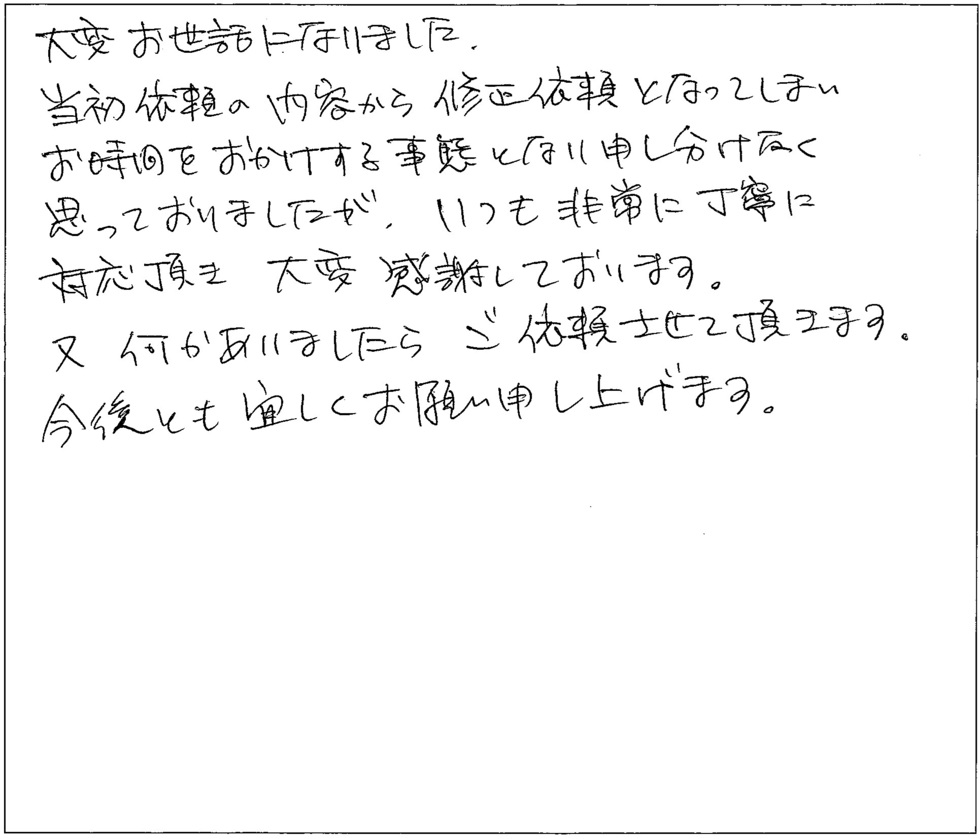 大変お世話になりました.
当初依頼の内容から修正依頼となってしまい
お時間をおかけする事態となり申し分けなく
思っておりましたが、いつも非常に丁寧に
対応頂き 大変感謝しております。
又 何かありましたら ご依頼させて頂きます。
今後とも宜しくお願い申し上げます。